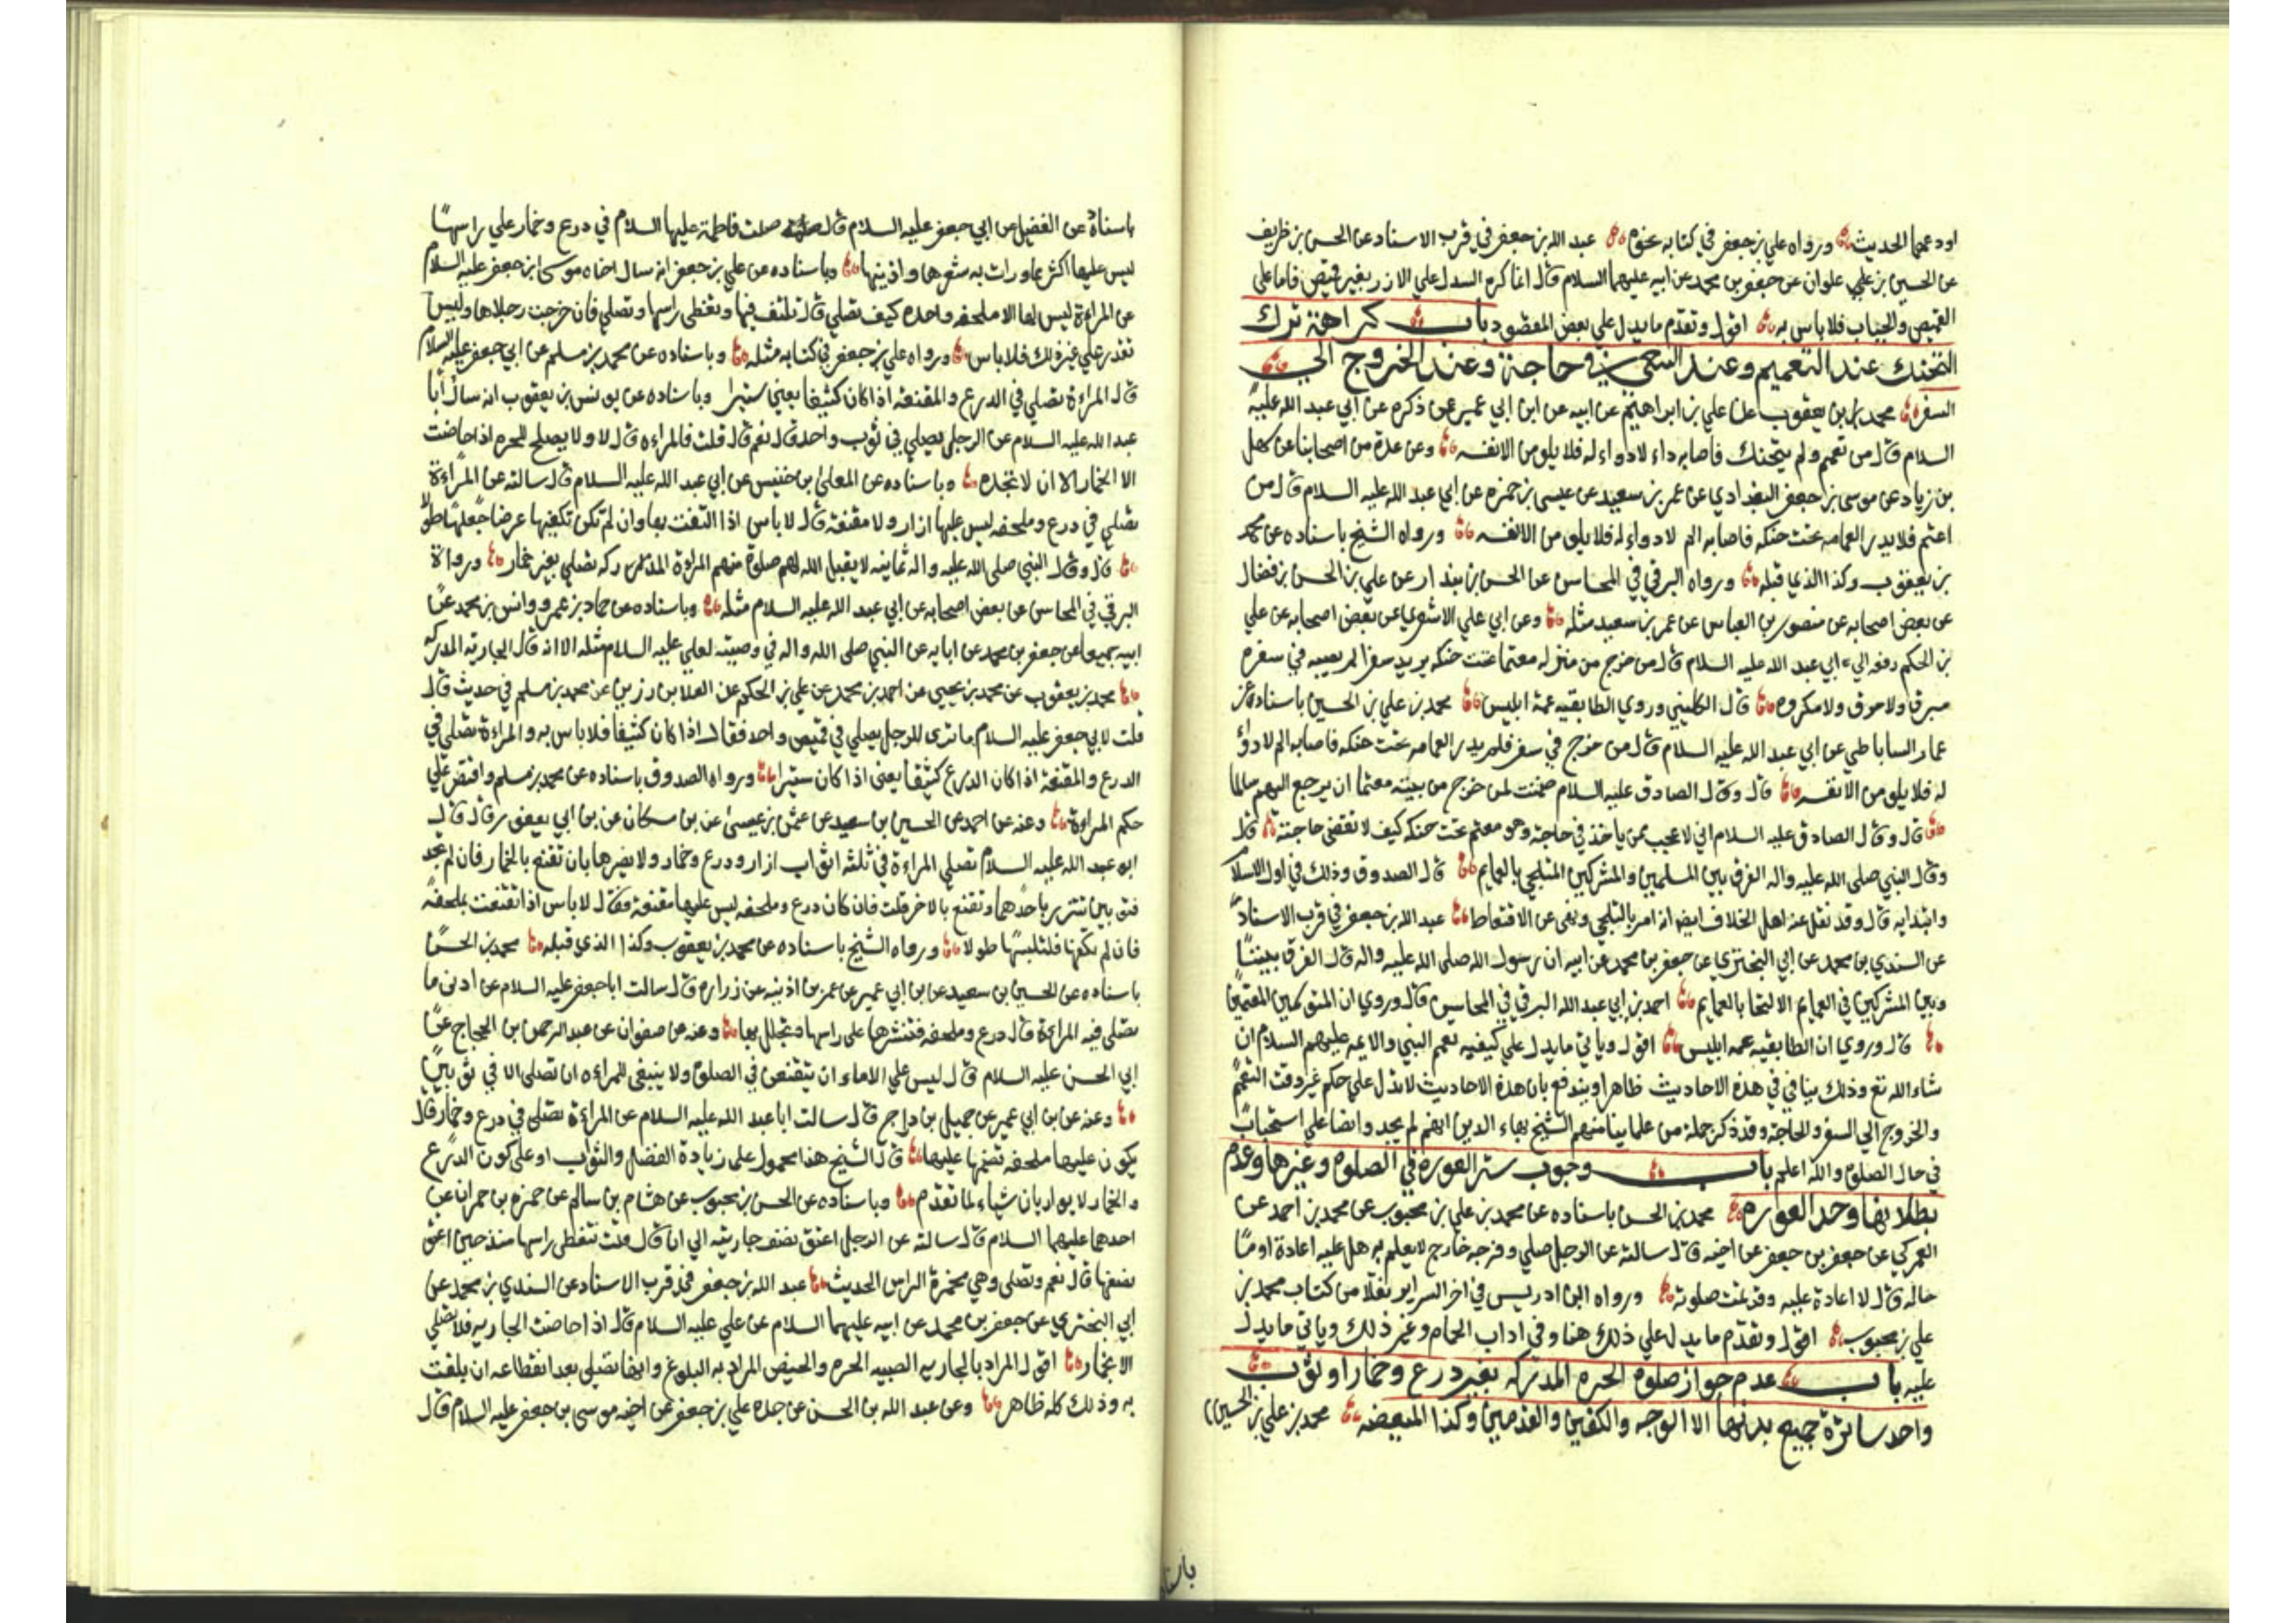 اودعهما الحديث ورواه علي بن جعفر في كتابه نحوه عبد الله بن جعفر في قرب الاسناد عن الحسن بن ظريف
عن الحسين بن علي علوان عن جعفر بن محمد عن ابيه عليهما السلام قال انما كره السدل علي الازر بغير قميص فاما علي
القميص والجباب فلا باس به اقول وتقدم ما يدل علي بعض المقصود باب كراهة ترك
التحنك عند التعميم وعند السعي في حاجة وعند الخروج الي
السفر محمد بن يعقوب عن علي بن ابراهيم عن ابيه عن ابن ابي عمير عمن ذكره عن ابي عبد الله عليه
السلام قال من تعمم ولم يتحنك فاصابه داء لا دواء له فلا يلومن الا نفسه وعن عدة من اصحابنا عن سهل
بن زياد عن موسى بن جعفر البغدادي عن عمر بن سعيد عن عيسى بن حمزه عن ابي عبد الله عليه السلام قال من
اعتم فلا يدير العمامه تحت حنكه فاصابه الم لا دواء له فلا يلومن الا نفسه ورواه الشيخ باسناده عن محمد
بن يعقوب وكذا الذي قبله ورواه البرقي في المحاسن عن الحسن بن بندار عن علي بن الحسن بن فضال
عن بعض اصحابه عن منصور بن العباس عن عمر بن سعيد مثله وعن ابي علي الاشعري عن بعض اصحابه عن علي
بن الحكم رفعه الي ابي عبد الله عليه السلام قال من خرج من منزله معتما تحت حنكه يريد سفرا لم يصبه في سفره
سرق ولا حرق ولا مكروه قال الكليني وروي الطابقيه عمة ابليس محمد بن علي بن الحسين باسناده عن
عمار الساباطي عن ابي عبد الله عليه السلام قال من خرج في سفر فلم يدير العمامه تحت حنكه فاصابه الم لا دواء
له فلا يلومن الا نفسه قال وقال الصادق عليه السلام ضمنت لمن خرج من بيته معتما ان يرجع اليهم سالما
قال وقال الصادق عليه السلام اني لاعجب ممن ياخذ في حاجة وهو معتم تحت حنكه كيف لا تقضى حاجته قال
وقال النبي صلي الله عليه واله الفرق بين المسلمين والمشركين التلحي بالعمايم قال الصدوق وذلك في اول الاسلام
وابتدايه قال وقد نقل عنه اهل الخلاف ايضا انه امر بالتلحي ونهى عن الاقتعاط عبد الله بن جعفر في قرب الاسناد
عن السندي بن محمد عن ابي البختري عن جعفر بن محمد عن ابيه ان رسول الله صلي الله عليه واله قال الفرق بيننا
وبين المشركين في العمايم الالتحا بالعمايم احمد بن ابي عبد الله البرقي في المحاسن قال وروي ان المتعممين
قال وروي ان الطابقيه عمه ابليس اقول وياتي ما يدل علي كيفيه تعمم النبي والايمه عليهم السلام ان
شاء الله تع وذلك ينافي في هذه الاحاديث ظاهرا ويندفع بان هذه الاحاديث لا تدل علي حكم غير وقت التعمم
والخروج الي السفر والحاجة وقد ذكر جملة من علمائنا منهم الشيخ بهاء الدين انهم لم يجدوا نصا علي استحباب
في حال الصلوة والله اعلم باب وجوب ستر العورة في الصلوة وغيرها وعدم
بطلانها وحد العوره محمد بن الحسن باسناده عن محمد بن علي بن محبوب عن محمد بن احمد عن
العمركي عن جعفر بن جعفر عن اخيه قال سالته عن الرجل صلي وفرجه خارج لا يعلم به هل عليه اعادة او ما
حاله قال لا اعادة عليه وقد تمت صلوته ورواه ابن ادريس في اخر السراير نقلا من كتاب محمد بن
علي بن محبوب اقول وتقدم ما يدل علي ذلك هنا وفي اداب الحمام وغير ذلك وياتي ما يدل
عليه باب عدم جواز صلوة الحره المدركه بغير درع وخمار او ثوب
واحد ساترة جميع بدنها الا الوجه والكفين والقدمين وكذا المبعضه محمد بن علي بن الحسين
باسناده عن الفضيل عن ابي جعفر عليه السلام قال صلت فاطمة عليها السلام في درع وخمار علي راسها
ليس عليها اكثر مما وارت به شعرها واذنيها وباسناده عن علي بن جعفر انه سال اخاه موسى بن جعفر عليه السلام
عن المراءة ليس لها الا ملحفه واحده كيف تصلي قال تلتف فيها وتغطى راسها وتصلي فان خرجت رجلاها وليس
تقدر علي غير ذلك فلا باس ورواه علي بن جعفر في كتابه مثله وباسناده عن محمد بن مسلم عن ابي جعفر عليه السلام
قال المراءة تصلي في الدرع والمقنعه اذا كان كثيفا يعني ستيرا وباسناده عن يونس بن يعقوب انه سال ابا
عبد الله عليه السلام عن الرجل يصلي في ثوب واحد قال نعم قال قلت فالمراءه قال لا ولا يصلح للحره اذا حاضت
الا الخمار الا ان لا تجده وباسناده عن المعلى بن خنيس عن ابي عبد الله عليه السلام قال سالته عن المراءة
تصلي في درع وملحفه ليس عليها ازار ولا مقنعة قال لا باس اذا التفت بها وان لم تكن تكفيها عرضا جعلتها طولا
قال وقال النبي صلي الله عليه واله ثمانيه لا يقبل الله لهم صلوة منهم المراءة المدركه تصلي بغير خمار ورواة
البرقي في المحاسن عن بعض اصحابه عن ابي عبد الله عليه السلام مثله وباسناده عن حماد بن عمرو وانس بن محمد عن
ابيه جميعا عن جعفر بن محمد عن ابايه عن النبي صلي الله واله في وصيته لعلي عليه السلام مثله الا انه قال الجاريه المدركه
محمد بن يعقوب عن محمد بن يحيي عن احمد بن محمد عن علي بن الحكم عن العلا بن رزين عن محمد بن مسلم في حديث قال
قلت لابي جعفر عليه السلام ما ترى للرجل يصلي في قميص واحد فقال اذا كان كثيفا فلا باس به والمراءة تصلي في
الدرع والمقنعة اذا كان الدرع كثيفا يعني اذا كان ستيرا ورواه الصدوق باسناده عن محمد بن مسلم واقتصر علي
حكم المراءة وعنه عن احمد عن الحسين بن سعيد عن عثمن بن عيسى عن بن مسكان عن بن ابي يعفور قال قال
ابو عبد الله عليه السلام تصلي المراءة في ثلثه اثواب ازار ودرع وخمار ولا يضرها بان تقنع بالخمار فان لم تجد
فثوبين تتزر باحدهما وتقنع بالاخر قلت فان كان درع وملحفه ليس عليها مقنعة فقال لا باس اذا تقنعت بملحفه
فان لم تكفها فلتلبسها طولا ورواه الشيخ باسناده عن محمد بن يعقوب وكذا الذي قبله محمد بن الحسن
باسناده عن الحسين بن سعيد عن بن ابي عمير عن عمر بن اذينه عن زراره قال سالت ابا جعفر عليه السلام عن ادنى ما
تصلي فيه المراءة قال درع وملحفه فتنشرها على راسها وتجلل بها وعنه عن صفوان عن عبد الرحمن بن الحجاج عن
ابي الحسن عليه السلام قال ليس علي الاماء ان يتقنعن في الصلوة ولا ينبغي للمراءه ان تصلي الا في ثوبين
وعنه عن بن ابي عمير عن جميل بن دراج قال سالت ابا عبد الله عليه السلام عن المراءة تصلي في درع وخمار قال
يكون عليها ملحفه تضمها عليها قال الشيخ هذا محمول على زيادة الفضل والثواب او على كون الدرع
والخمار لا يواريان شياء لما تقدم وباسناده عن الحسن بن محبوب عن هشام بن سالم عن حمزه بن حمران عن
احدهما عليهما السلام قال سالته عن الرجل اعتق نصف جاريته الي ان قال قلت تغطى راسها منذ حين اعتق
نصفها قال نعم وتصلي وهي مخمرة الراس الحديث عبد الله بن جعفر في قرب الاسناد عن السندي بن محمد عن
ابي البختري عن جعفر بن محمد عن ابيه عليهما السلام عن علي عليه السلام قال اذا حاضت الجاريه فلا تصلي
الا بخمار اقول المراد بالجاريه الصبيه الحره والحيض المراد به البلوغ وانها تصلي بعد انقطاعه ان بلغت
به وذلك كله ظاهر وعن عبد الله بن الحسن عن جده علي بن جعفر عن اخيه موسى بن جعفر عليه السلام قال